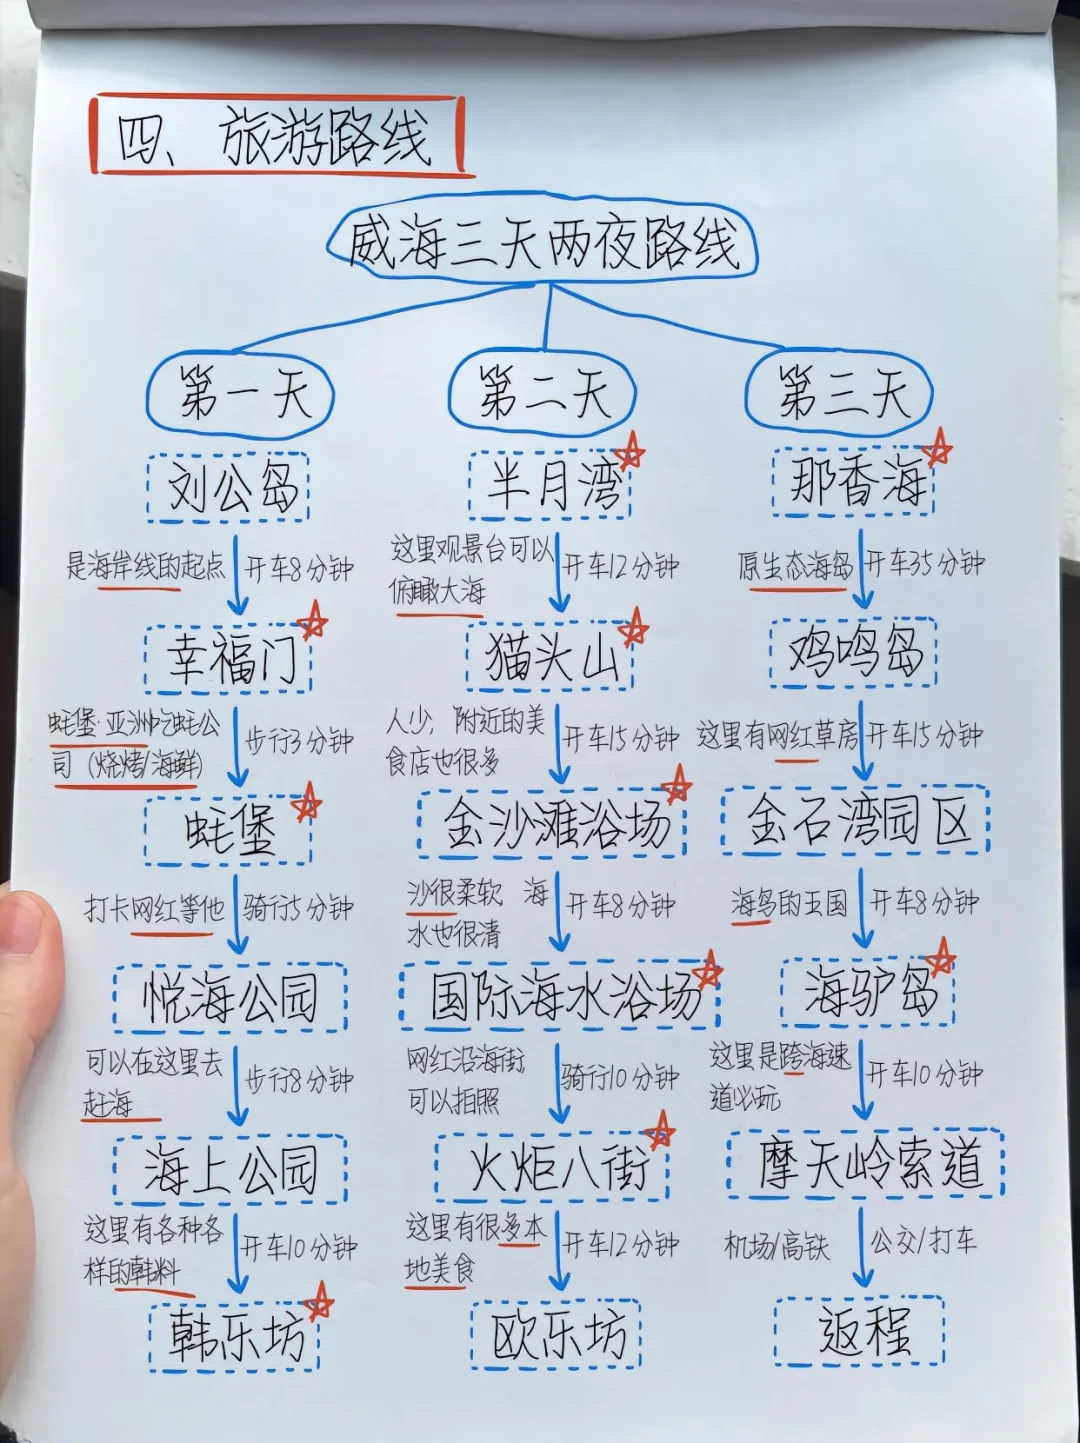 四、旅游路线
威海三天两夜路线
第一天
刘公岛
是海岸线的起点
开车8分钟
幸福门
蚝堡·亚洲吃蚝公
司（烧烤/海鲜）
步行3分钟
蚝堡
打卡网红等他
骑行5分钟
悦海公园
可以在这里去
赶海
步行8分钟
海上公园
这里有各种各
样的韩料
开车10分钟
韩乐坊
第二天
半月湾
这里观景台可以
俯瞰大海
开车12分钟
猫头山
人少，附近的美
食店也很多
开车15分钟
金沙滩浴场
沙很柔软 海
水也很清
开车8分钟
国际海水浴场
网红沿海街
可以拍照
骑行10分钟
火炬八街
这里有很多本
地美食
开车12分钟
欧乐坊
第三天
那香海
原生态海岛
开车35分钟
鸡鸣岛
这里有网红草房
开车15分钟
金石湾园区
海鸟的王国
开车8分钟
海驴岛
这里是跨海速
道必玩
开车10分钟
摩天岭索道
机场/高铁
公交/打车
返程